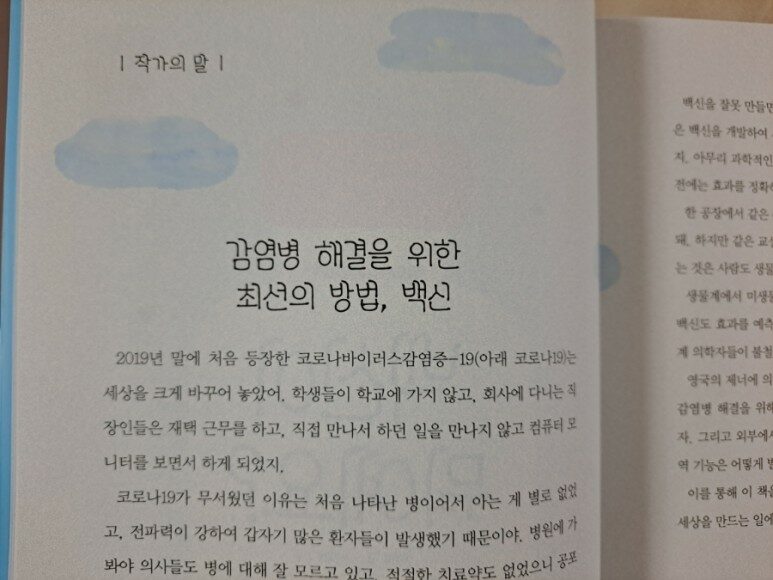 | 작가의 말 |
감염병 해결을 위한
최선의 방법, 백신
2019년 말에 처음 등장한 코로나바이러스감염증-19(아래 코로나19)는
세상을 크게 바꾸어 놓았어. 학생들이 학교에 가지 않고, 회사에 다니는 직
장인들은 재택 근무를 하고, 직접 만나서 하던 일을 만나지 않고 컴퓨터 모
니터를 보면서 하게 되었지.
코로나19가 무서웠던 이유는 처음 나타난 병이어서 아는 게 별로 없었
고, 전파력이 강하여 갑자기 많은 환자들이 발생했기 때문이야. 병원에 가
봐야 의사들도 병에 대해 잘 모르고 있고, 적절한 치료약도 없었으니 공포
백신을 잘못 만들면
은 백신을 개발하여
지. 아무리 과학적인
전에는 효과를 정확
한 공장에서 같은
돼. 하지만 같은 교실
는 것은 사람도 생물
생물계에서 미생물
백신도 효과를 예측
계 의학자들이 불철
영국의 제너에 의
감염병 해결을 위해
자. 그리고 외부에서
역 기능은 어떻게
이를 통해 이 책을
세상을 만드는 일에